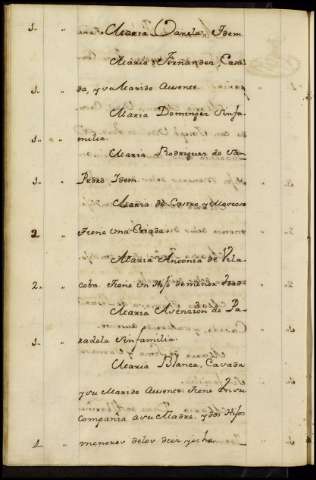 1. " Maria Varela, Idem
Maria Fernandez, Casa
1. " da, y su Marido Ausente
Maria Dominguez Sinfa
1. " milia
Maria Rodriguez de San
1. " Pedro Idem
Maria de Castro y
2 " tiene una Criada
Maria Antonia de Vila
2. " coba tiene un Hijo de menor edad
Maria Asension de Pa
1. " radela Sinfamilia
Maria Blanco, Casada
y su Marido Ausente tiene en su
Compañia a su Madre, y dos Hijos
1 " menores de los diez y